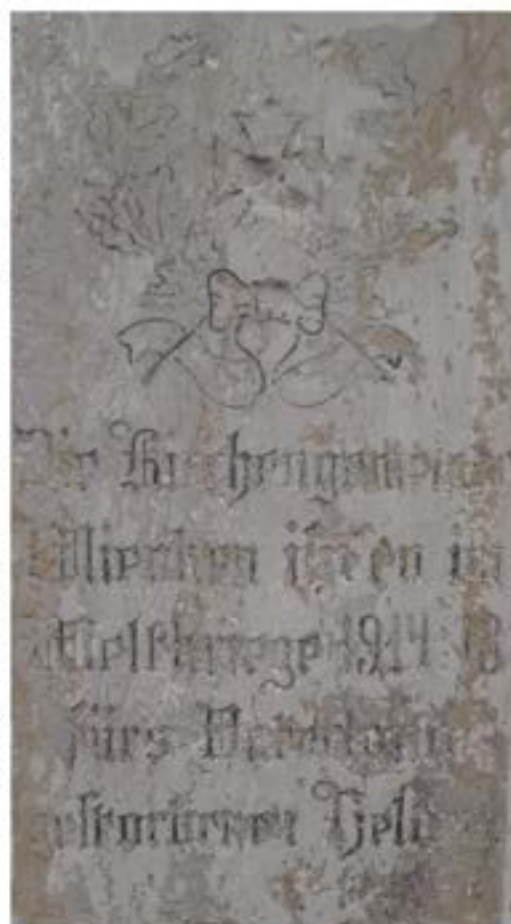 Die Kirchengemeinde
ihren im
Weltkriege 1914 18
fürs Vaterland
gestorbenen Helden